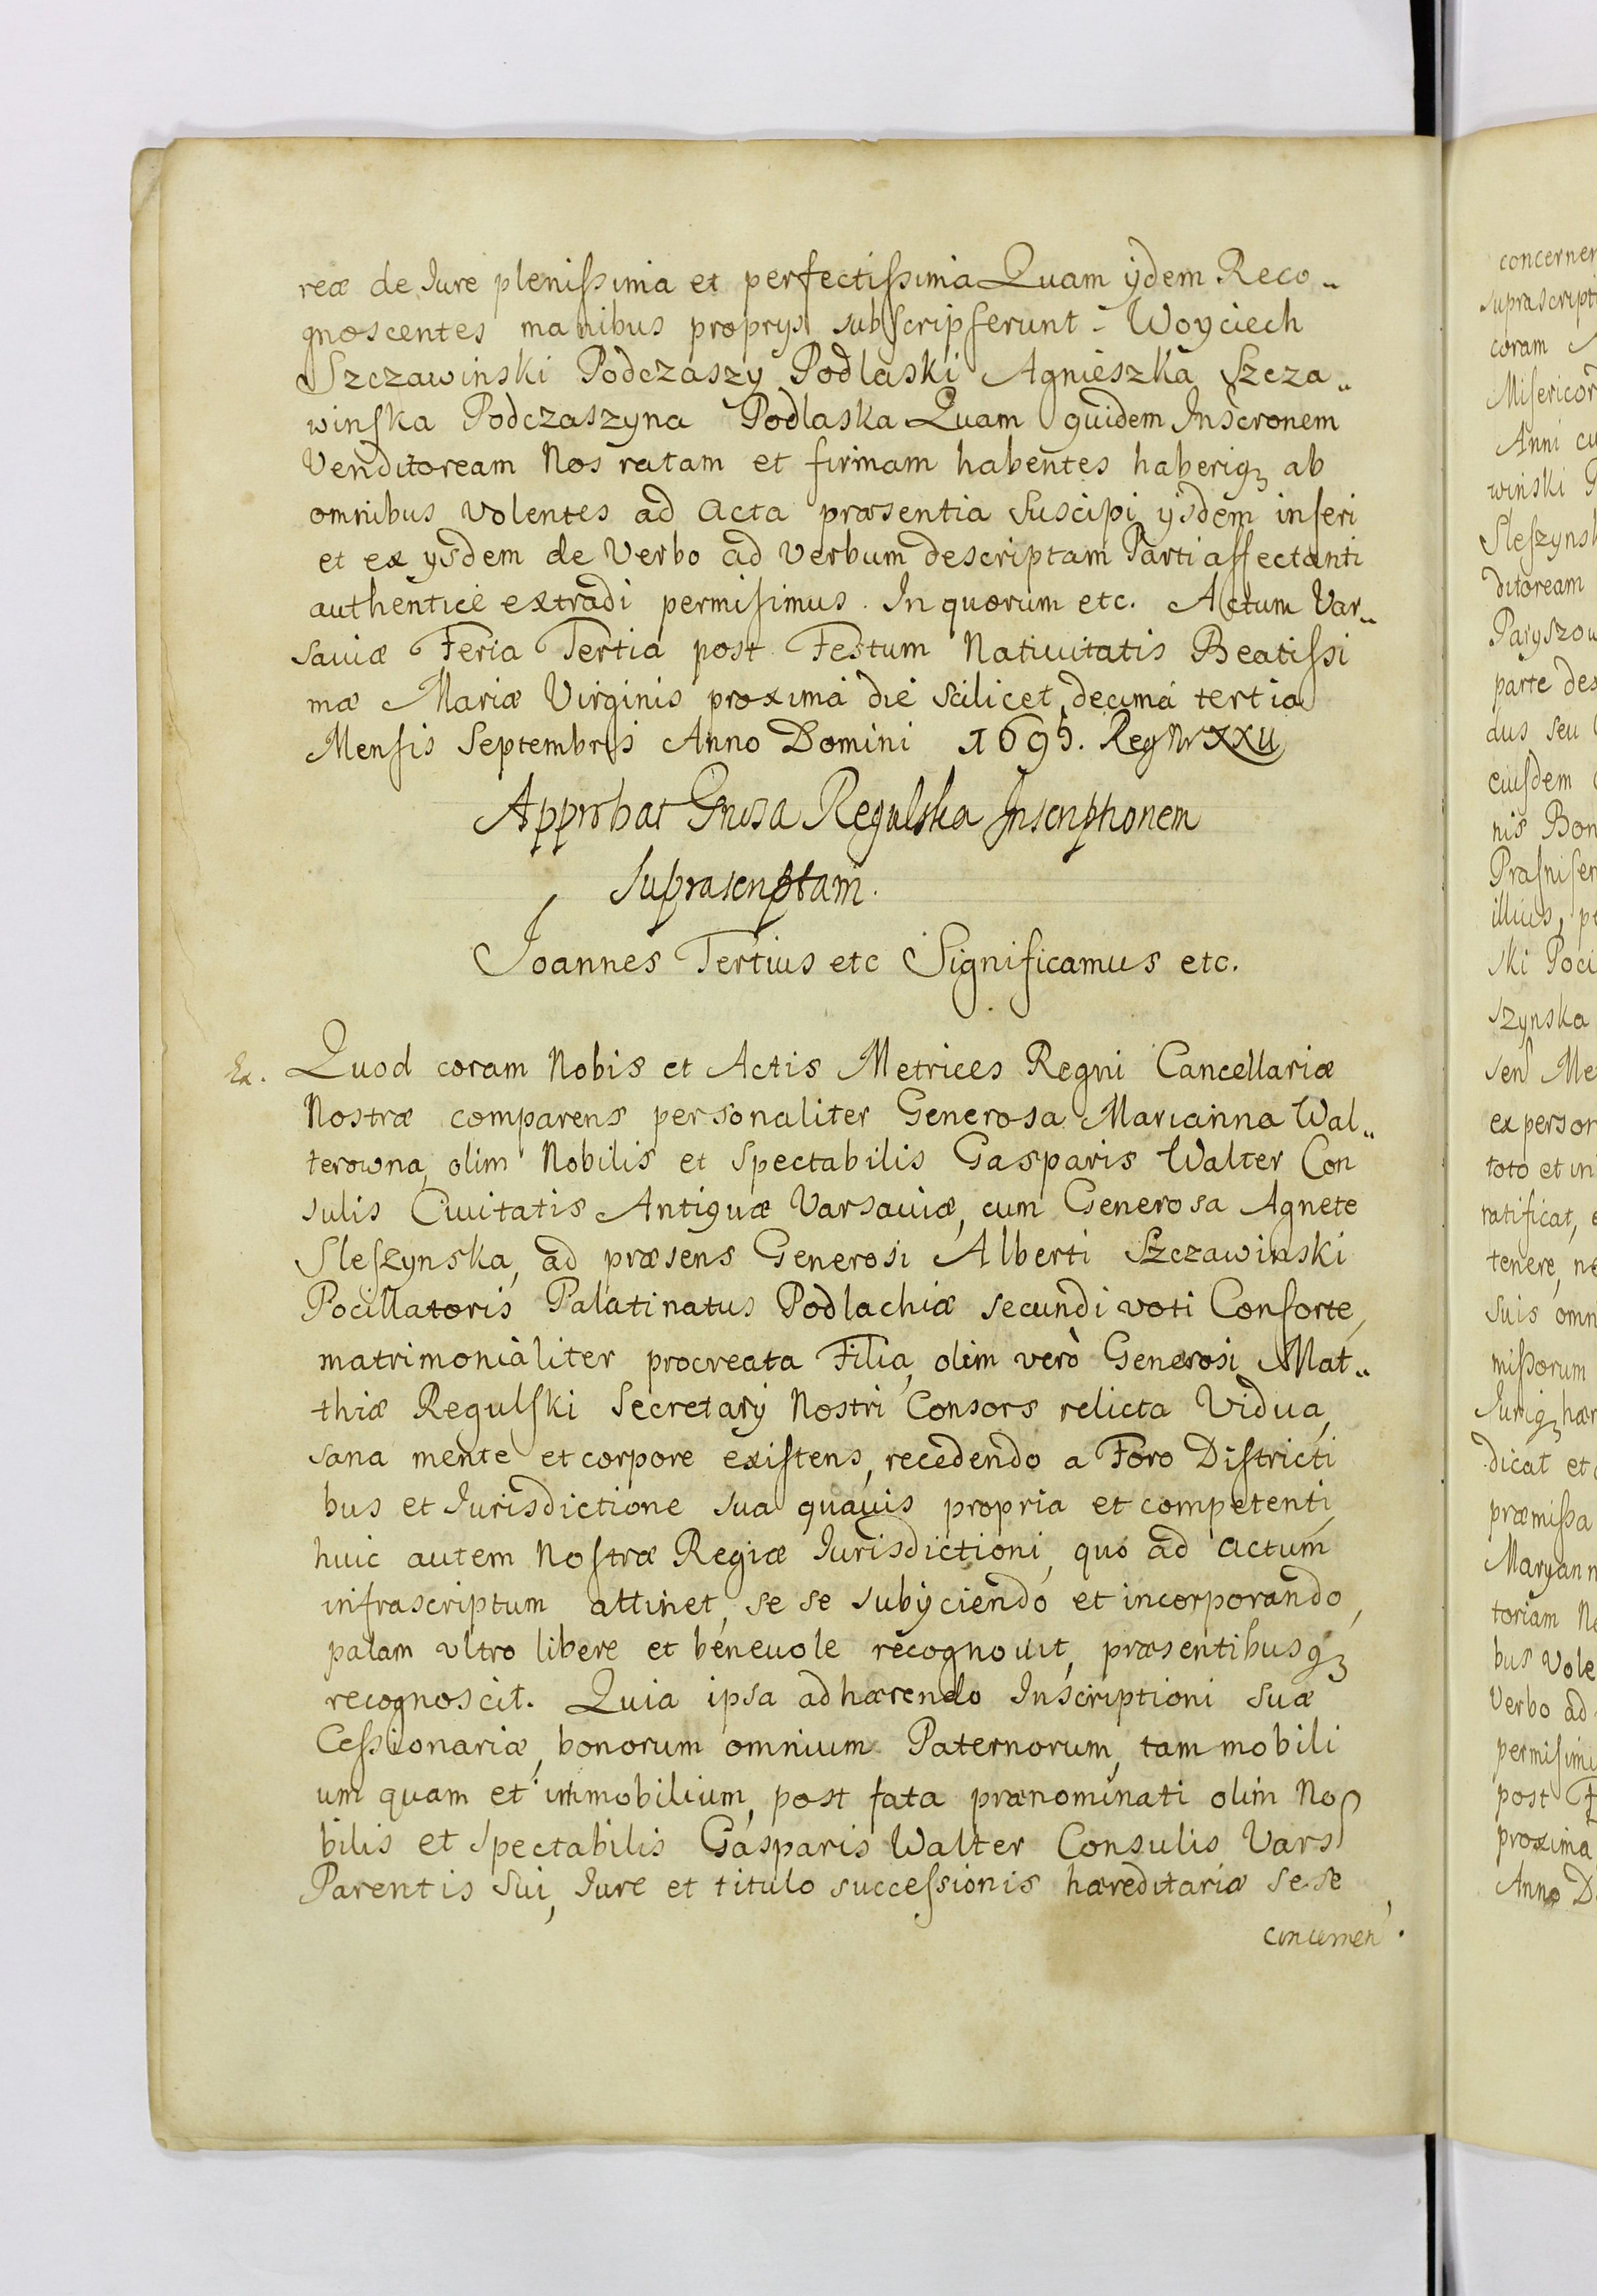 reæ de Iure plenissima et perfectissima Quam ÿdem Reco„
gnoscentes manibus proprys subscripserunt - Woyciech
Szczawinski Podczaszy Podlaski Agnieszka Szcza„
winska Podczaszyna Podlaska Quam quidem Inscronem
Venditoream Nos ratam et firmam habentes haberiqȝ ab
omnibus volentes ad Acta præsentia Suscipi ysdem inseri
et ex ysdem de Verbo ad Verbum descriptam Parti affectanti
authenticè extradi permisimus. In quorum etc. Actum Var„
saviæ Feria Tertia post Festum Nativitatis Beatissi
mæ Mariæ Virginis proximá die scilicet decimá tertia
Mensis Septembris Anno Domini 1695. Reg Nr XXII
Approbat Gnosa Regulska Inscriptionem
suprascriptam.
Joannes Tertius etc Significamus etc.
Ex. Quod coram Nobis et Actis Metrices Regni Cancellariæ
Nostræ comparens personaliter Generosa Marianna Wal„
terowna, olim Nobilis et Spectabilis Gasparis Walter Con
sulis Civitatis Antiquæ Varsaviæ, cum Generosa Agnete
Sleszynska, ad præsens Generosi Alberti Szczawinski
Pocillatoris Palatinatus Podlachiæ secundi voti Consorte,
matrimonialiter procreata Filia, olim verò Generosi Mat„
thiæ Regulski Secretarÿ Nostri Consors relicta Vidua,
sana mente et corpore existens, recedendo a Foro Districti
bus et Iurisdictione sua quavis propria et competenti,
huic autem Nostræ Regiæ Iurisdictioni, quó ad actum
infrascriptum attinet, se se subÿciendo et incorporando,
palam vltro libere et benevole recognovit, præsentibusqȝ
recognoscit. Quia ipsa adhærendo Inscriptioni suæ
Cessionariæ, bonorum omnium Paternorum, tam mobili
um quam et immobilium, post fata prænominati olim No
bilis et Spectabilis Gasparis Walter Consulis Vars
Parentis sui, Iure et titulo successionis hæreditariæ se se
concernen.
concerner
suprascript
coram
Misericor
Anni cu
winski P
Sleszynsk
ditoream
Paryszow
parte des
dus seu
eiusdem
nis Bon
Prasnisen
illius, pe
ski Poci
szynska
sen Me
ex person
toto et in
ratificat, e
tenere, ne
suis omn
missorum
Iuriqȝ hær
dicat et
præmissa
Maryann
toriam No
bus vole
Verbo ad
permisimu
post F
proxima
Anno D